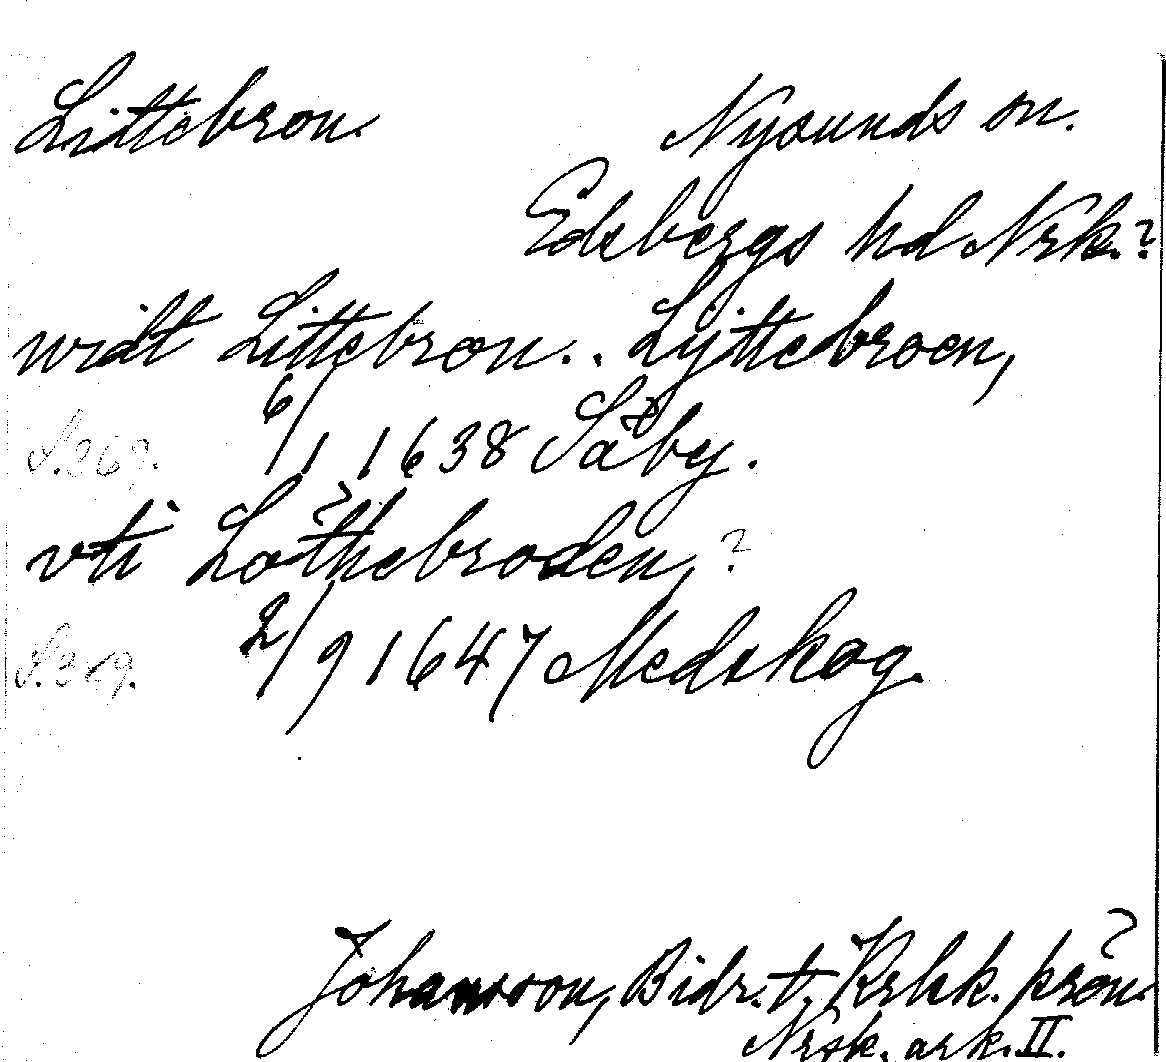 Littebron. Nysunds sn.
Edsbergs hd Nrk.?
widt Littebron.. Lyttebroen,
S. 369. 6/1 1638 Säby.
vti Lothebroden, ?
S. 369. 2/9 1647 Medskog.
Johansson, Bidr. t. Krkk. krön.
Nrsk. ark. II.